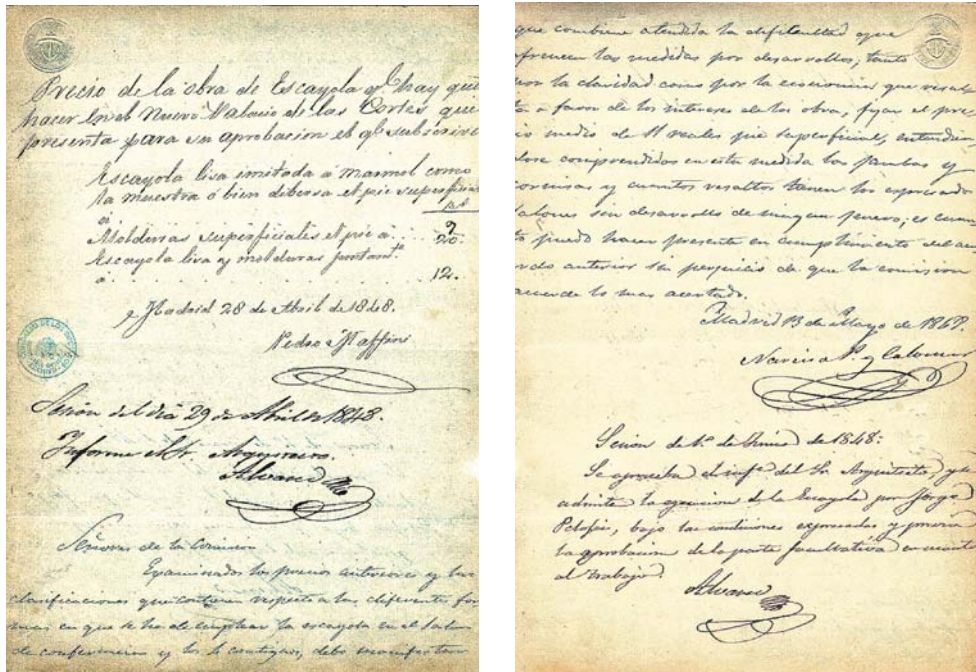 Precio de la obra de Escayola q.e hay que
hacer en el Nuevo Palacio de las Cortes que
presenta para su aprobacion el q.e subscrive
Escayola lisa imitada á marmol como
la muestra ó bien diversa el pie superficial
á 9
Molduras superficiales el pie á 20.
Escayola lisa y molduras juntam.te
á 12.
Madrid 28 de Abril de 1848.
Pedro Maffini
Sesion del dia 29 de Abril de 1848.
Informe el Sr. Arquitecto.
Alvarez
Señores de la Comision
Examinados los precios anteriores y las
clasificaciones que contienen respecto a las diferentes for
mas en que se ha de emplear la escayola en el salon
de conferencias y los contiguos, debo manifestar
que conbiene atendida la dificultad que
ofrecen las medidas por desarrollos, tanto
por la claridad como por la economia que resul
ta a favor de los intereses de las obras, fijar el pre
cio medio de 11 reales pie superficial, entendien
dose comprendidas en esta medida las jambas y
cornisas y cuantos resaltos tienen los expresados
salones sin desarrollos de ningun genero; es cuan
to puedo hacer presente en cumplimiento del acu
erdo anterior sin perjuicio de que la comision
acuerde lo mas acertado.
Madrid 13 de Mayo de 1848.
Narciso P. y Colomer
Sesion de 1.º de Junio de 1848:
Se aprueba el inf.e del Sr. Arquitecto, y se
admite la ejecucion de la Escayola por Jorge
bajo las condiciones expresadas y previa
la aprobacion de la parte facultativa en cuanto
al trabajo.
Alvarez